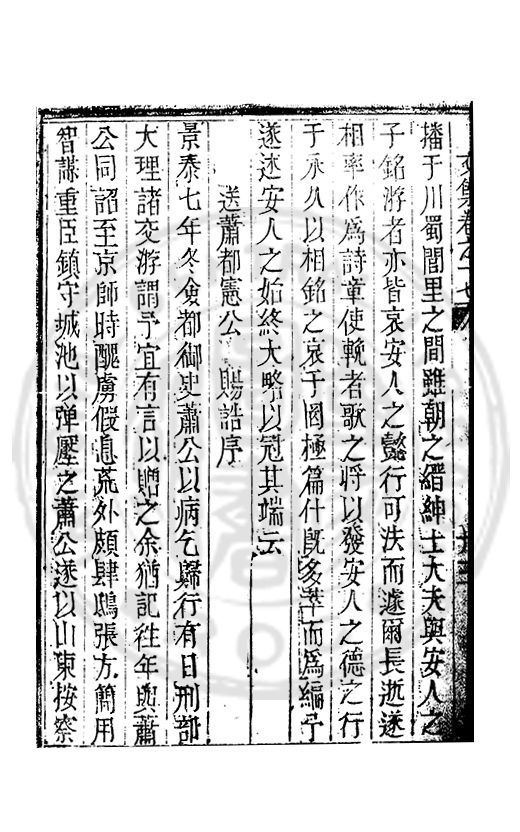 播于川蜀閭里之間雖朝之縉紳士大夫與安人之
子銘游者亦皆哀安人之懿行可法而遽爾長逝遂
相率作為詩章使輓者歌之將以發安人之德之行
于永久以相銘之哀于罔極篇什旣多萃而為編予
遂述安人之始終大略以冠其端云
送蕭都憲公 賜誥序
景泰七年冬僉都御史蕭公以病乞歸行有日刑部
大理諸交游謂予宜有言以贈之余猶記往年與蕭
公同詔至京師時醜虜假息荒外頗肆鴟張方簡用
智謀重臣鎮守城池以弹壓之蕭公遂以山東按察